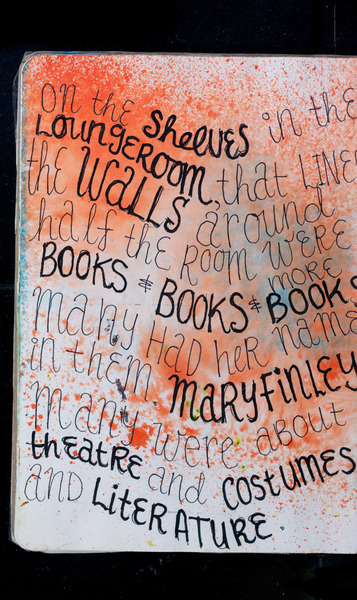 on the Shelves in the
LOUNGEROOM, that LINE
the WALLS around
half the ROOM WERE
BOOKS & BOOKS & MORE BOOKS
many HAD heR NAME
in thEM MARYFiNLEY
many were about
theatRE and COSTUMES
AND LiteRATURE.